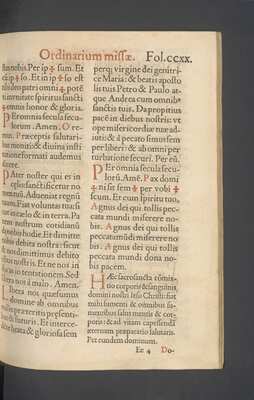 Ordinarium missæ. Fol.ccxx.
stus nobis. Per ip✠sum. Et
cũ ip✠so. Et in ip✠so est
tibi deo patri omni✠potẽ
ti in vnitate spiritus sancti
omnis honor & gloria.
PEr omnia secula secu-
lorum. Amen. Ore-
mus. Præceptis salutari-
bus moniti: & diuina insti
tutione formati audemus
dicere.
PAter noster qui es in
cęlis: sanctificetur no
men tuũ. Adueniat regnũ
tuum. Fiat voluntas tua: si
cut in cælo & in terra. Pa
nem nostrum cotidianũ
da nobis hodie. Et dimitte
nobis debita nostra: sicut
& nos dimittimus debito
ribus nostris. Et ne nos in
ducas in tentationem. Sed
libera nos à malo. Amen.
Libera nos quæsumus
domine ab omnibus
malis præteritis præsenti
bus & futuris. Et interce-
dẽte beata & gloriosa sem
perq; virgine dei genitri-
ce Maria: & beatis aposto
lis tuis Petro & Paulo at-
que Andrea cum omnibꝰ
sanctis tuis. Da propitius
pacẽ in diebus nostris: vt
ope misericordiæ tuæ ad-
iuti: & à peccato simus sem
per liberi: & ab omni per
turbatione securi. Per eũ.
PEr omnia secula secu-
lorũ. Amẽ. Pax domi
✠ni sit sem✠per vobi✠
scum. Et cum spiritu tuo.
Agnus dei qui tollis pec-
cata mundi miserere no-
bis. Agnus dei qui tollis
peccata mũdi miserere no
bis. Agnus dei qui tollis
peccata mundi dona no-
bis pacem.
HÆc sacrosancta cõmix
tio corporis & sanguinis
domini nostri Iesu Christi: fiat
mihi sumenti & omnibus su-
mentibus salus mentis & cor-
poris: & ad vitam capessendã
æternam præparatio salutaris.
Per eundem dominum.
Ee 4 Do-